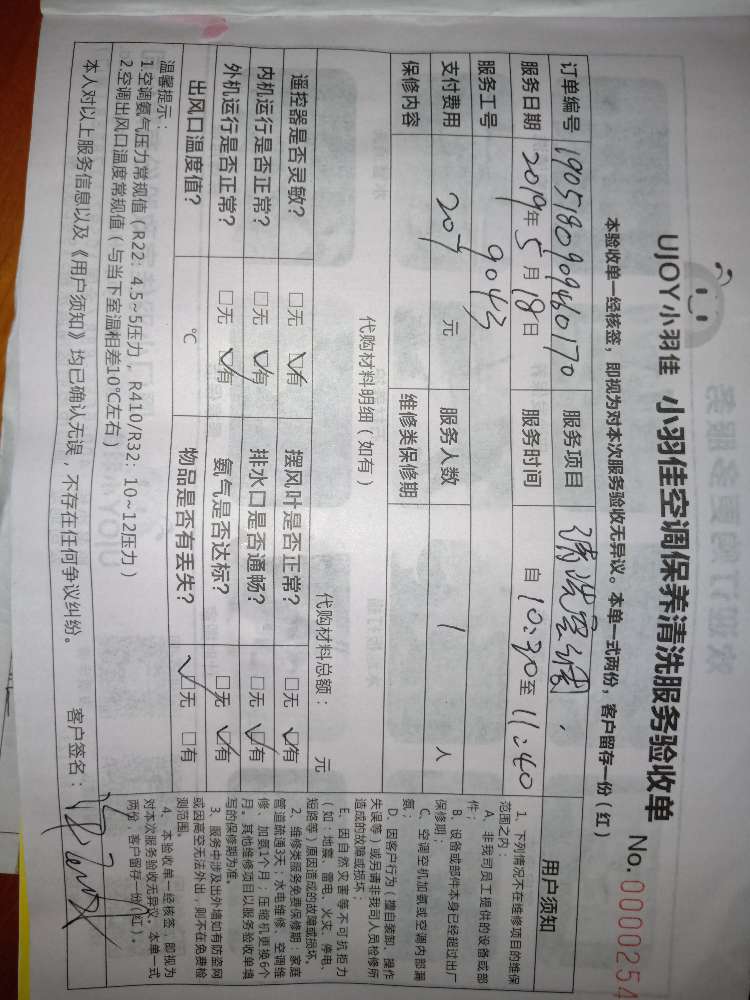 UJOY小羽佳 小羽佳空调保养清洗服务验收单 No.0000254
本验收单一经核签，即视为对本次服务验收无异议。本单一式两份，客户留存一份（红）
订单编号 1905180909460170 服务项目 清洗空调
服务日期 2019年5月18日 服务时间 自10:30至11:40
服务工号 9043
支付费用 207元 服务人数 1人
保修内容 维修类保修期
代购材料明细（如有） 代购材料总额： 元
遥控器是否灵敏？ □无 ☑有 摆风叶是否正常？ □无 ☑有
内机运行是否正常？ □无 ☑有 排水口是否通畅？ □无 ☑有
外机运行是否正常？ □无 ☑有 氨气是否达标？ □无 ☑有
出风口温度值？ ℃ 物品是否有丢失？ ☑无 □有
温馨提示：
1.空调氨气压力常规值（R22: 4.5~5压力，R410/R32: 10~12压力）
2.空调出风口温度常规值（与当下室温相差10℃左右）
本人对以上服务信息以及《用户须知》均已确认无误，不存在任何争议纠纷。 客户签名：
用户须知
1、下列情况不在维修项目的维保
范围之内：
A、非我司员工提供的设备或部
件；
B、设备或部件本身已经超过出厂
保修期；
C、空调空机加氨或空调内部漏
氨；
D、因客户行为（擅自装卸、操作
失误等）或另请非我司人员检修所
造成的故障或损坏；
E、因自然灾害等不可抗拒力
（如：地震、雷电、火灾、停电、
短路等）原因造成的故障或损坏。
2、维修类服务免费保修期：家庭
管道疏通3天；水电维修、空调维
修、加氨1个月；压缩机更换6个
月。其他维修项目以服务验收单填
写的保修期为准。
3、服务中涉及出外墙如有防盗网
或因高空无法外出，则不在免费检
测范围。
4、本验收单一经核签，即视为
对本次服务验收无异议。本单一式
两份，客户留存一份（红）。